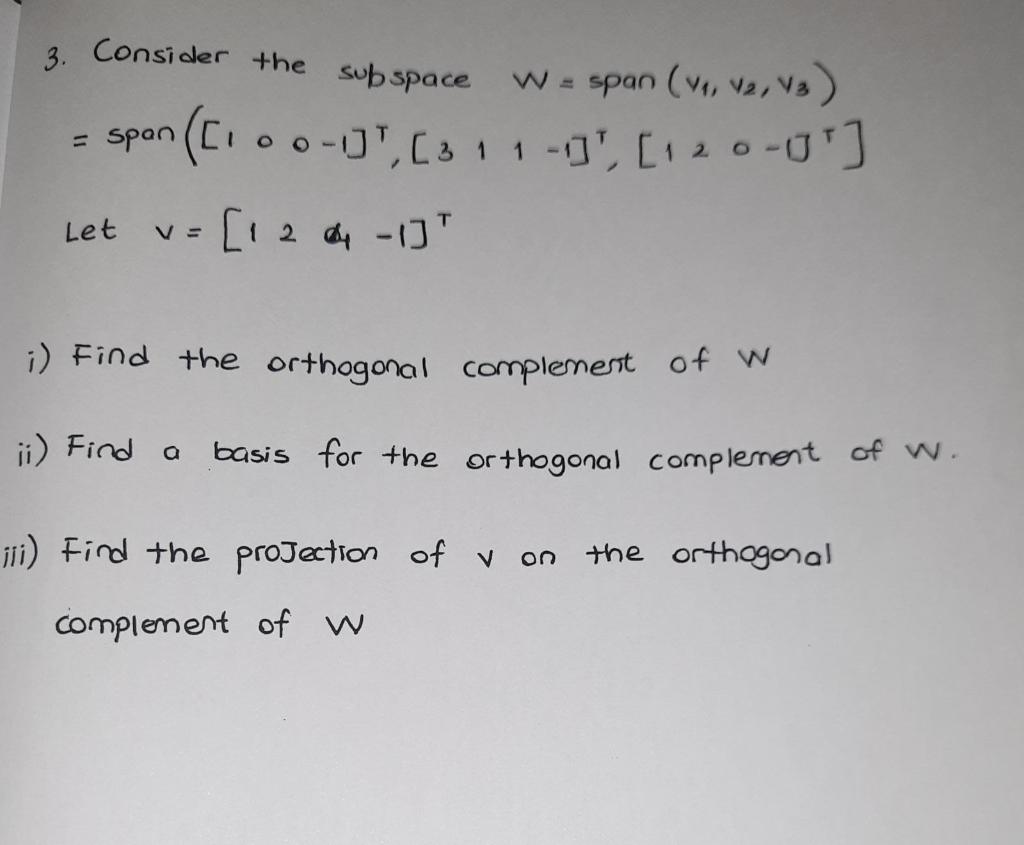 3. Consider the subspace W = span (v₁, v₂, v₃)
= span ([1 0 0 -1]ᵀ, [3 1 1 -1]ᵀ, [1 2 0 -1]ᵀ]
Let v = [1 2 4 -1]ᵀ
i) Find the orthogonal complement of W
ii) Find a basis for the orthogonal complement of W.
iii) Find the projection of v on the orthogonal
complement of W